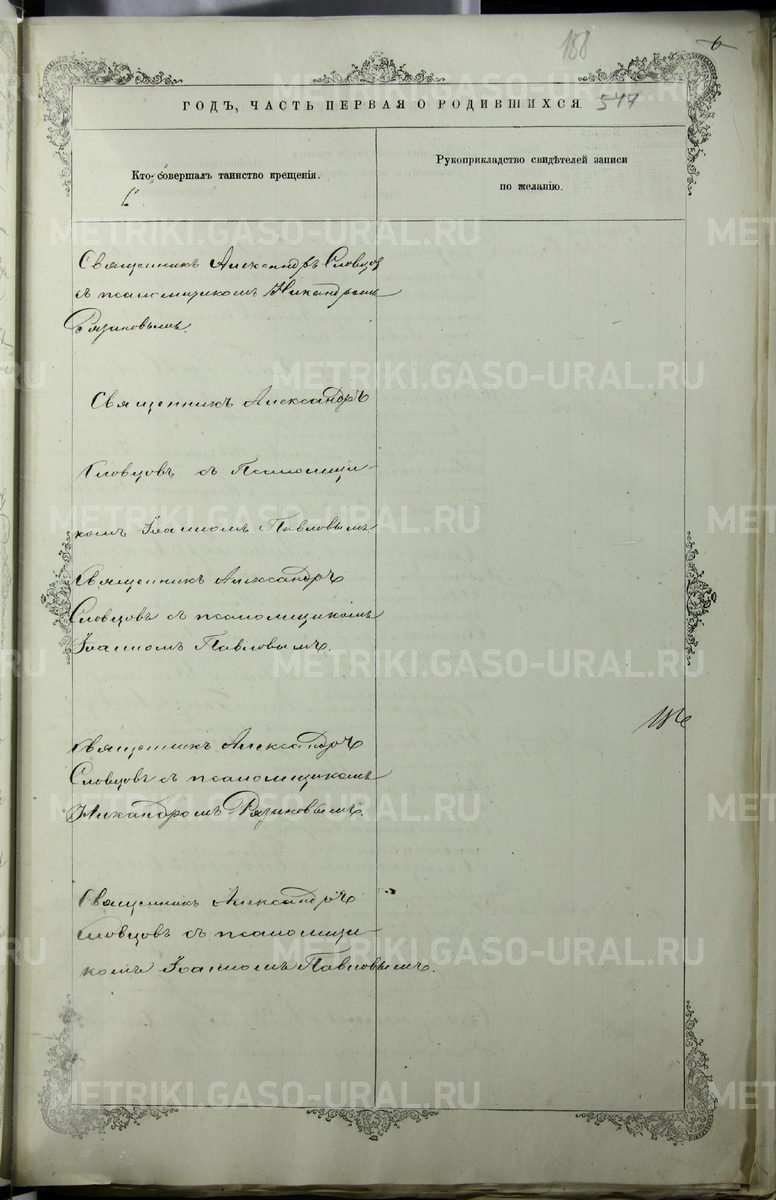 188
6
ГОДЪ, ЧАСТЬ ПЕРВАЯ О РОДИВШИХСЯ 544
Кто совершалъ таинство крещенія.
Рукоприкладство свидѣтелей записи
по желанію.
Священникъ Александръ Словцов
съ псаломщикомъ Никандромъ
Рязановымъ.
Священникъ Александръ
Словцовъ съ Псаломщи-
комъ Іоанномъ Павловымъ.
Священникъ Александръ
Словцовъ съ псаломщикомъ
Іоанномъ Павловымъ.
Священникъ Александръ
Словцовъ съ псаломщикомъ
Никандромъ Рязановымъ.
Священникъ Александръ
Словцовъ съ псаломщи-
комъ Іоанномъ Павловымъ.
METRIKI.GASO-URAL.RU